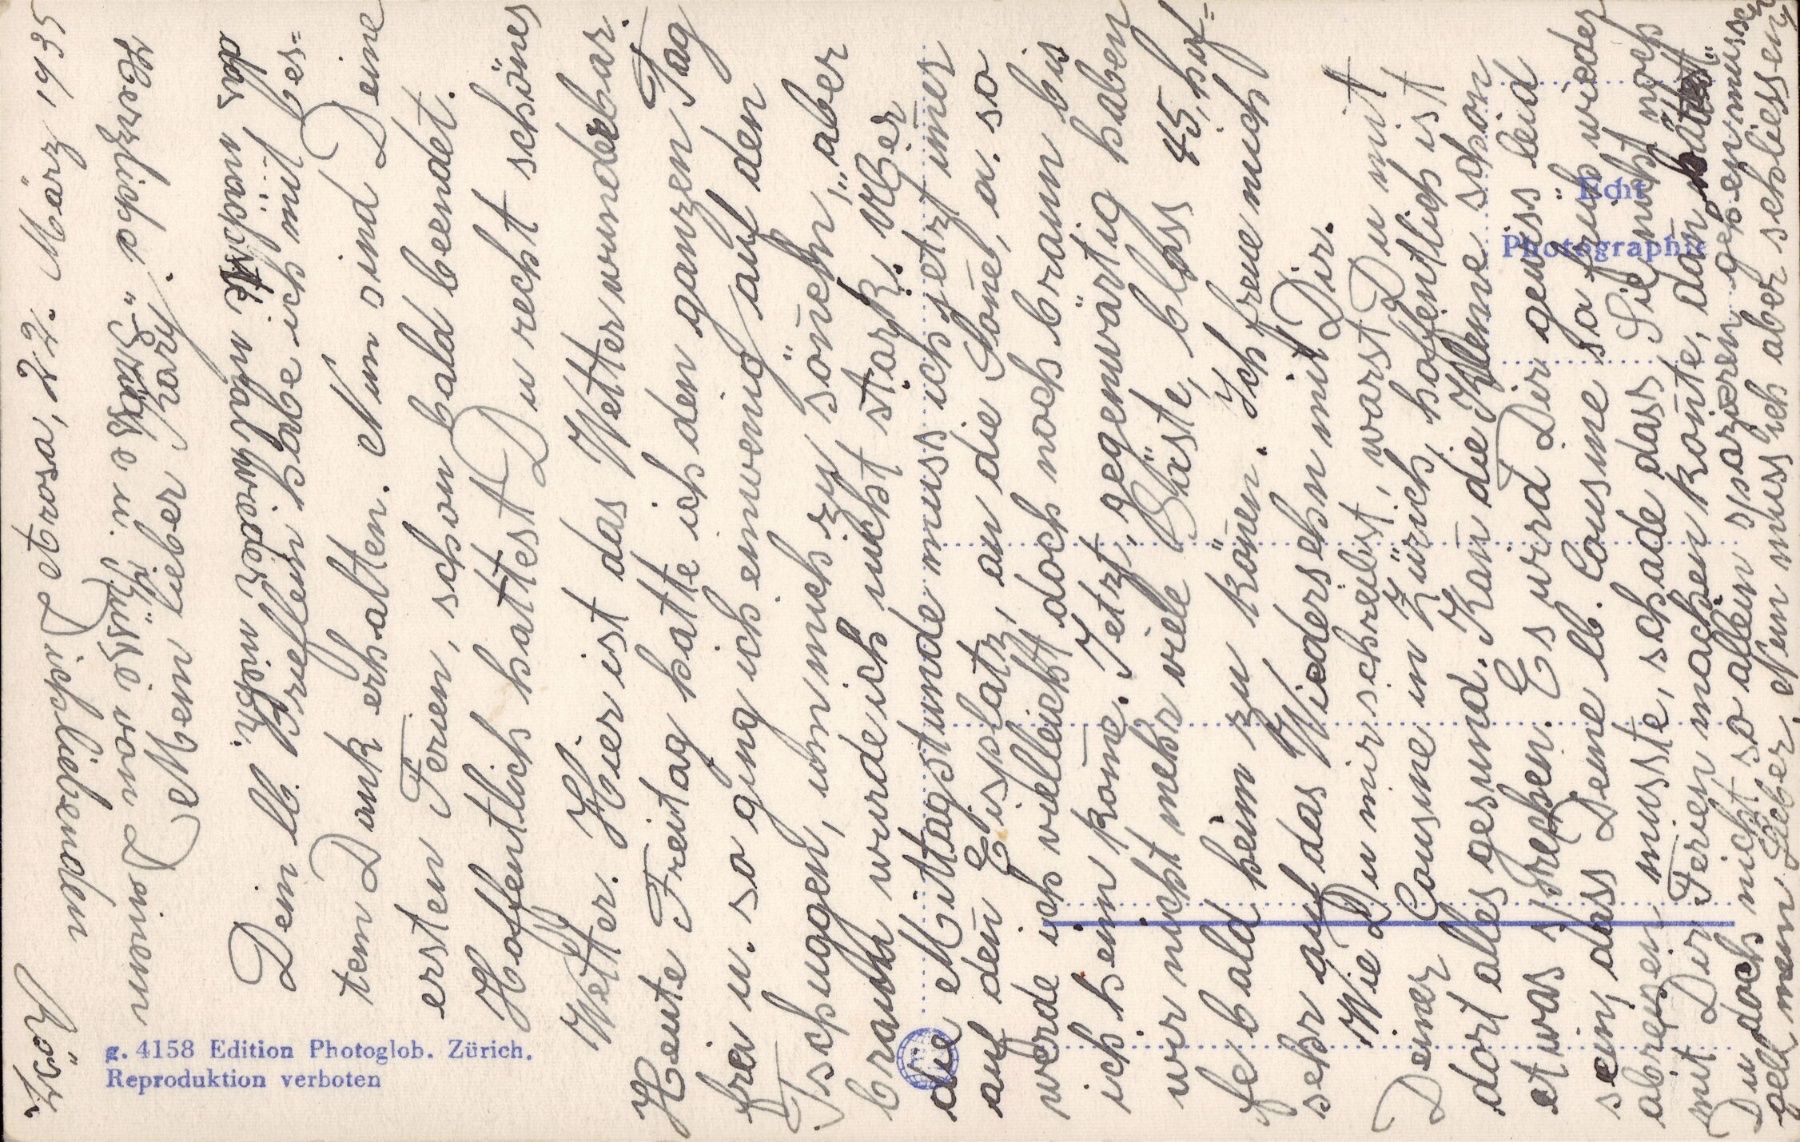 Arosa, 22. März 1935
Mein lieber Kary!
Dein lb. Brieflein habe ich mit bes=
tem Dank erhalten. Nun sind Deine
ersten Ferien, schon bald beendet.
Hoffentlich hattest Du recht schönes
Wetter. Hier ist das Wetter wunderbar.
Heute Freitag hatte ich den ganzen Tag
frei u. so ging ich ein wenig auf den
Tschuggen, um mich zu "sönelen", aber
braun wurde ich nicht stark. Über
die Mittagstunde muss ich jetzt im̄er
auf den Eisplatz, an die Son̄e, u. so
werde ich vielleicht doch noch braun bis
ich heim kom̄e. Jetzt, gegenwärtig haben
wir nicht mehr viele Gäste, bloss 45, hof=
fe bald heim zu kön̄en. Ich freue mich
sehr auf das Wiedersehn mit Dir.
Wie Du mir schreibst, warst Du mit
Deiner Cousine in Zürich, hoffentlich ist
dort alles gesund. Kan̄ die Kleine schon
etwas sprechen. Es wird Dir gewiss leid
sein, dass Deine lb. Cousine so früh wieder
abreisen musste, schade dass Sie nicht noch
mit Dir Ferien machen kon̄te, dan̄ hättest
Du doch nicht so allein spazieren gehen müssen
gell mein Lieber. Nun muss ich aber schliessen,
das nächste mal wieder mehr.
Herzliche Grüsse u. Küsse von Deinem
Dichliebenden
Rösli
g. 4158 Edition Photoglob. Zürich.
Reproduktion verboten
Echt
Photographie